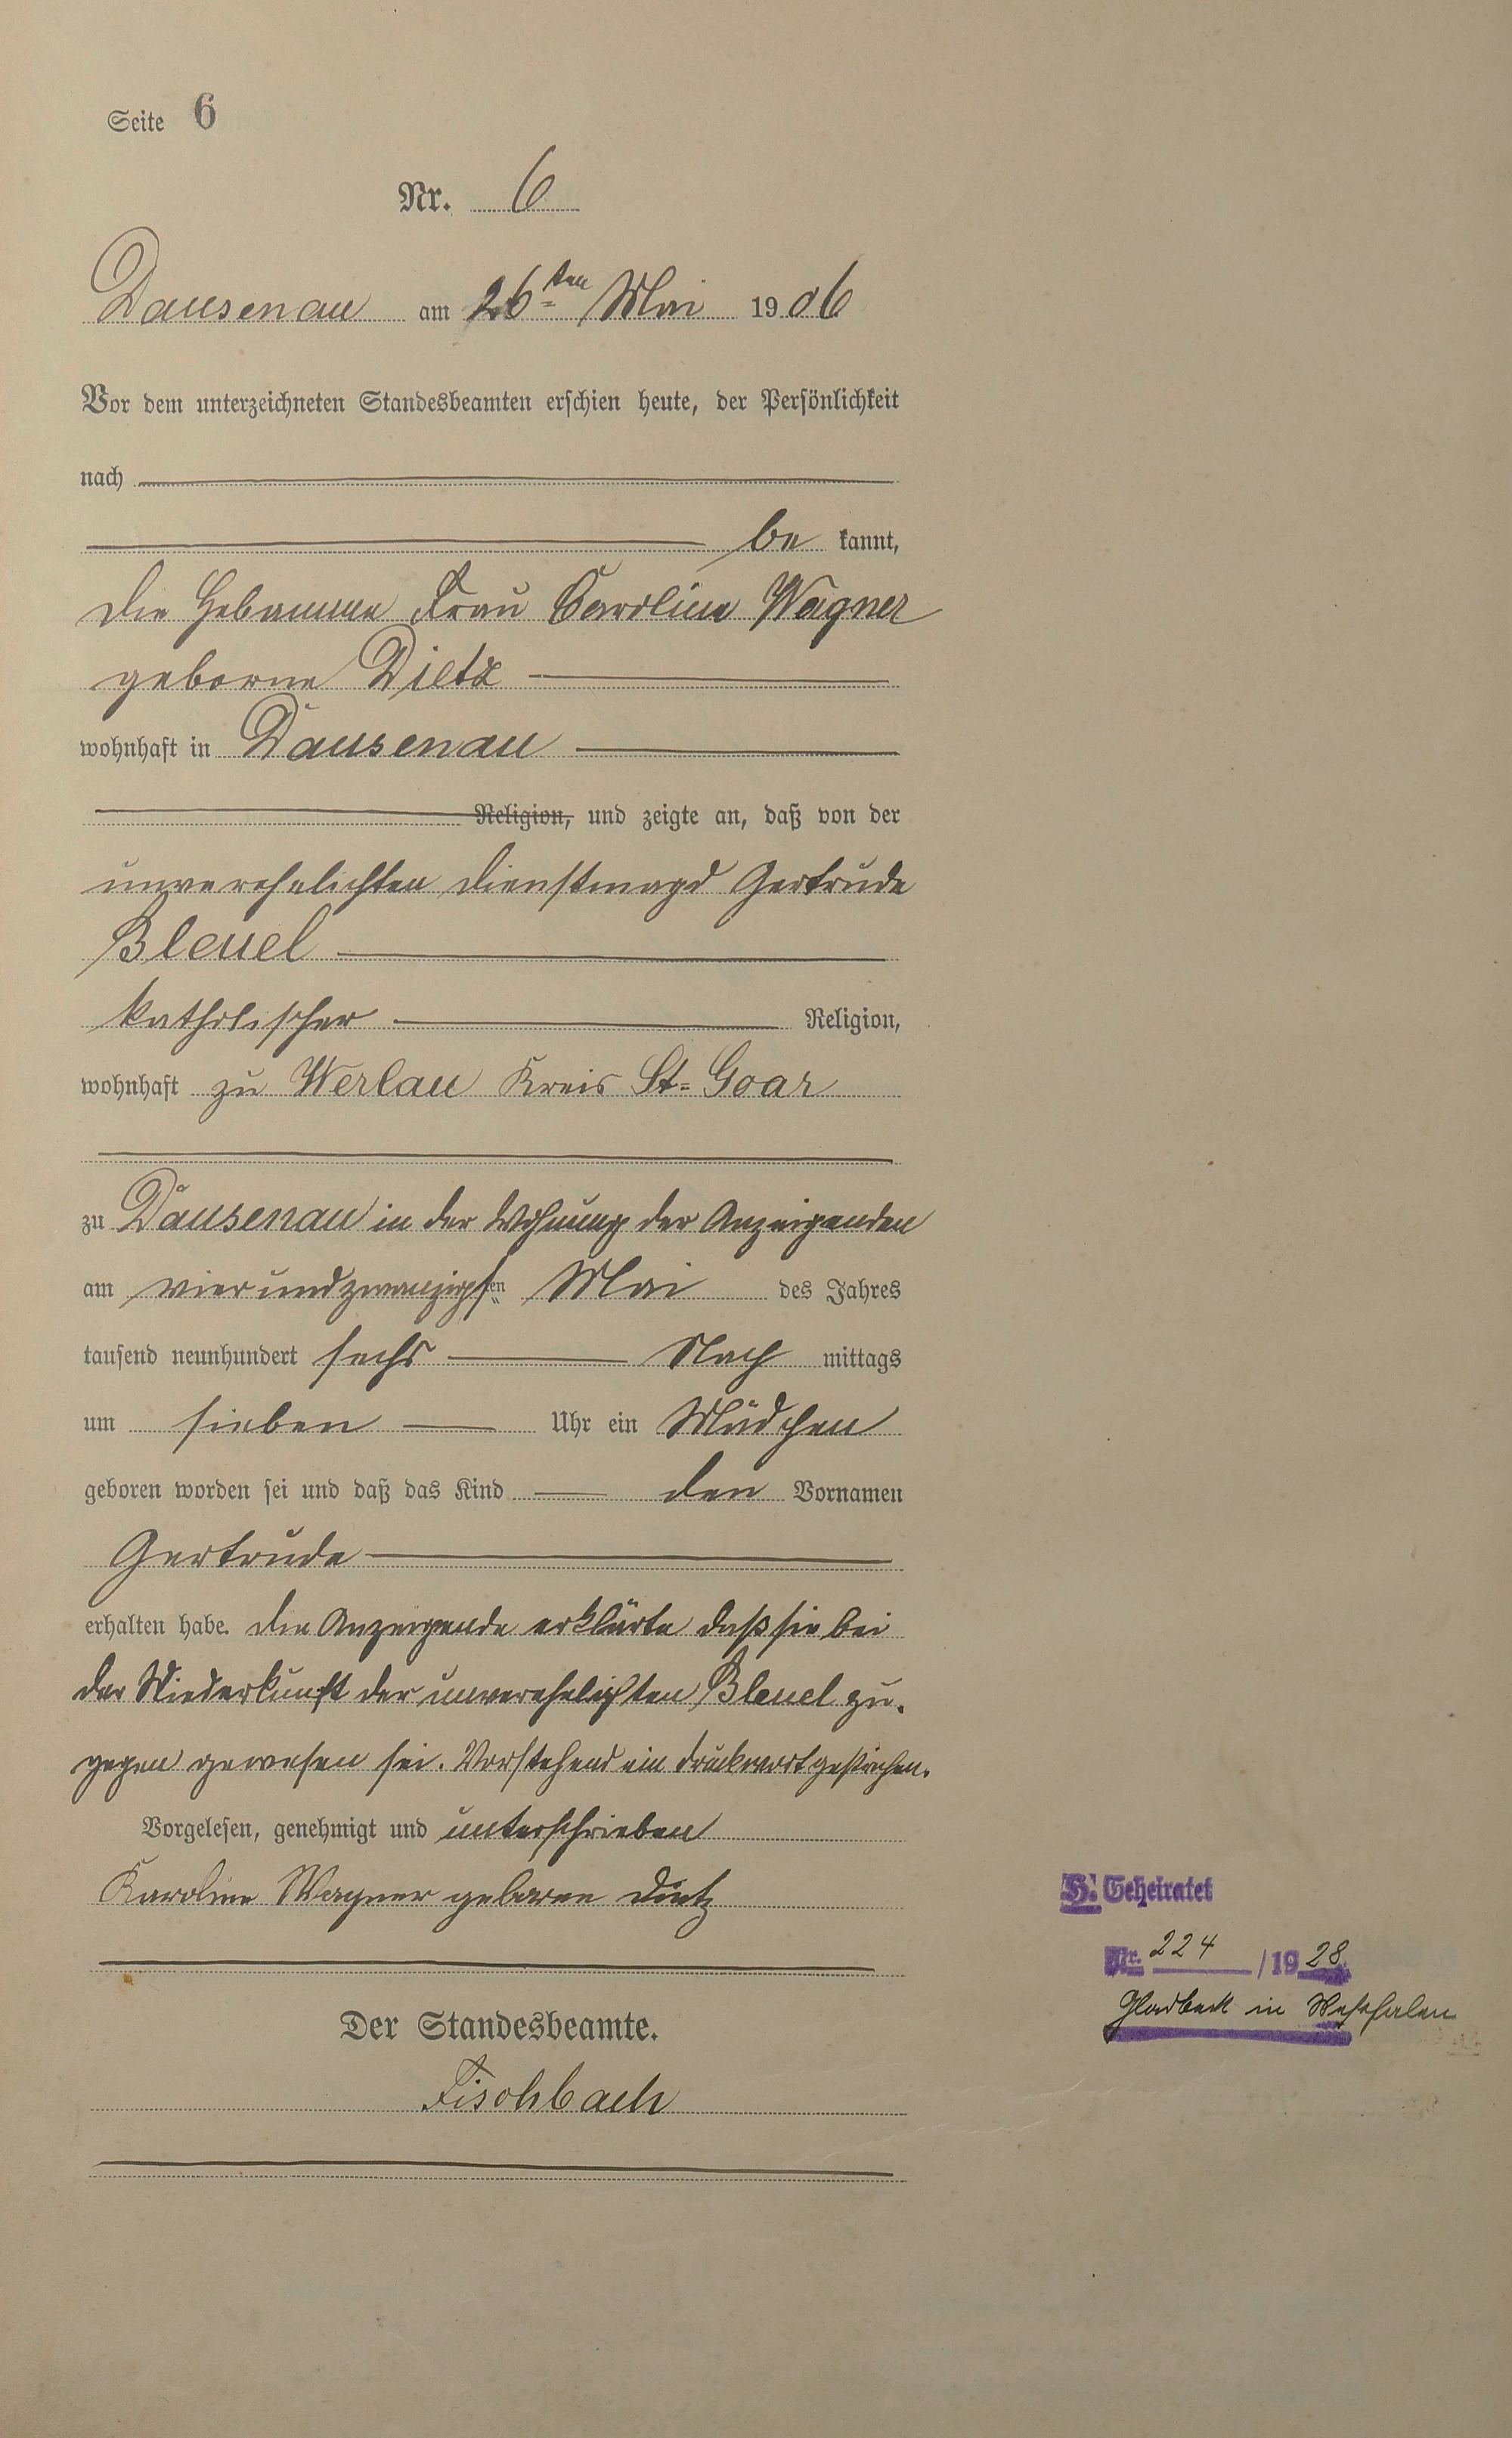 Seite 6
Nr. 6
Dausenau am 26ten Mai 1906
Vor dem unterzeichneten Standesbeamten erschien heute, der Persönlichkeit
nach
be kannt,
die Hebamme Frau Caroline Wagner
geborne Dietz
wohnhaft in Dausenau
Religion, und zeigte an, daß von der
unverehelichten Dienstmagd Gertrude
Bleuel
katholischer Religion,
wohnhaft zu Werlau Kreis St=Goar
zu Dausenau in der Wohnung der Anzeigenden
am vierundzwanzigsten Mai des Jahres
tausend neunhundert sechs Nach mittags
um sieben Uhr ein Mädchen
geboren worden sei und daß das Kind den Vornamen
Gertrude
erhalten habe. die Anzeigende erklärte daß sie bei
der Niederkunft der unverehelichten Bleuel zu.
gegen gewesen sei. Vorstehend ein Druckwort gestrichen.
Vorgelesen, genehmigt und unterschrieben
Karoline Wagner geborne Dietz
H. Geheiratet
Nr. 224 / 1928.
Gladbeck in Westfalen
Der Standesbeamte.
Fischbach